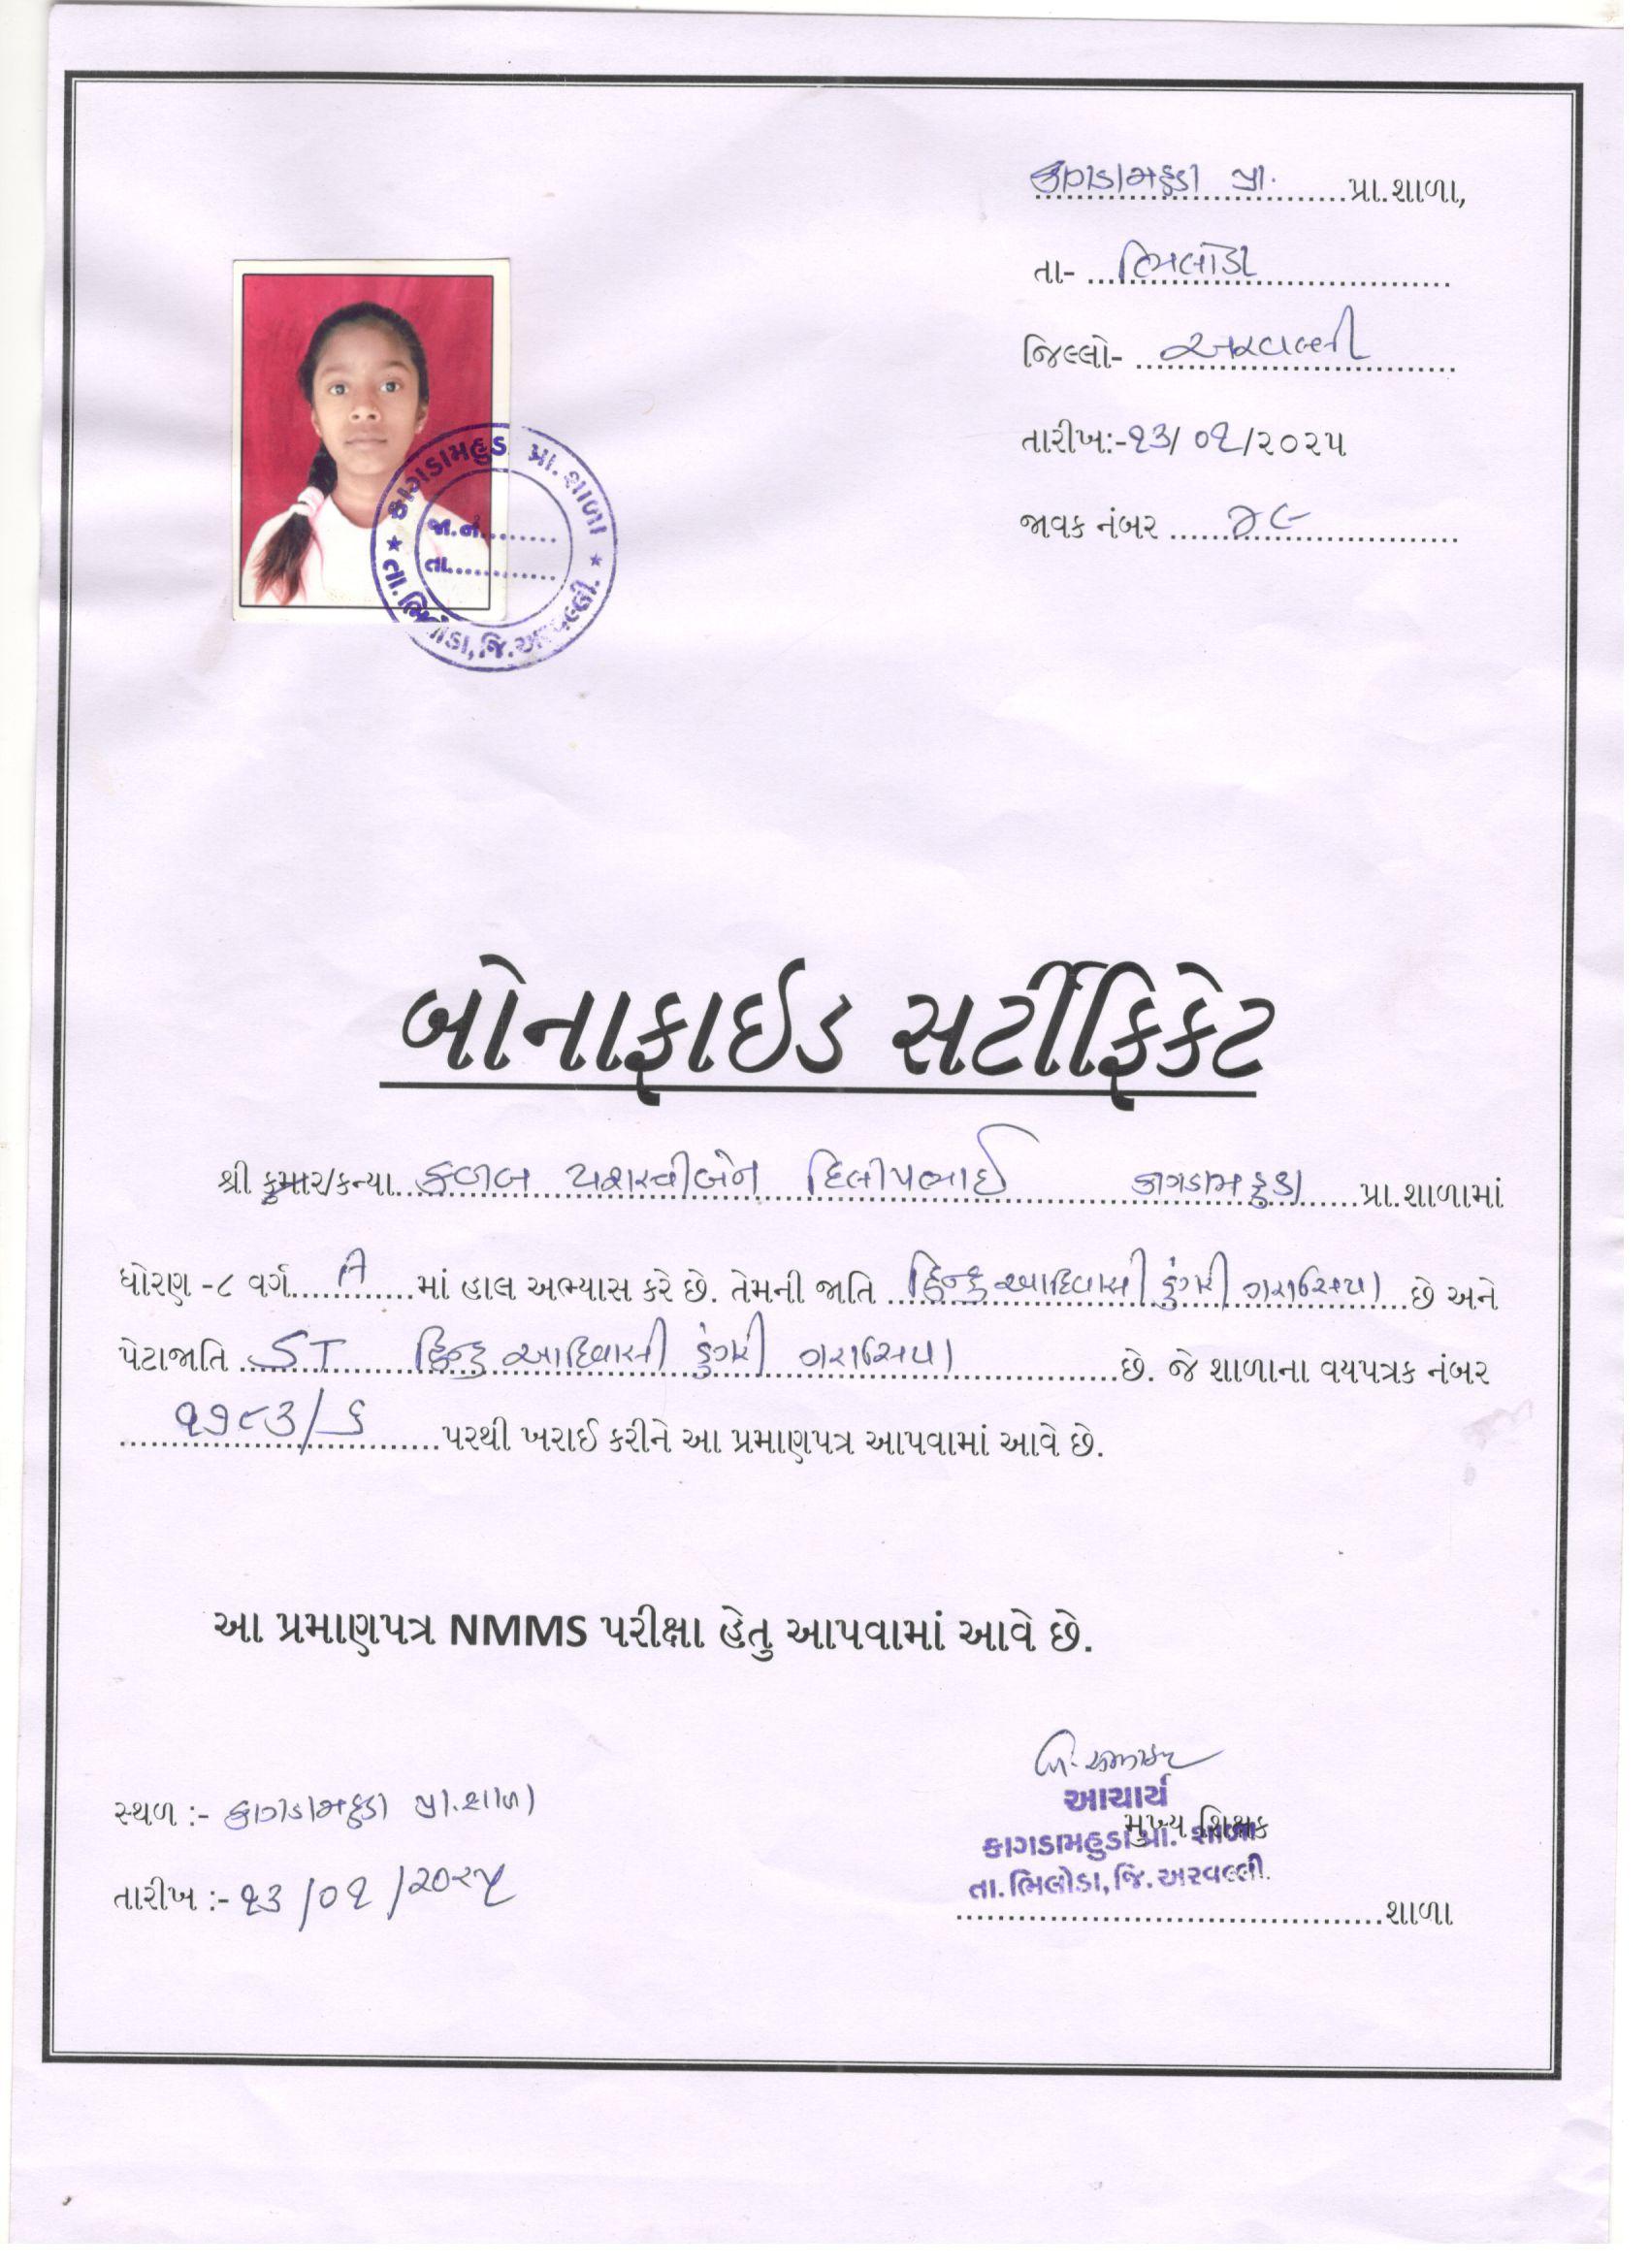 કાગડામહુડા પ્રા. પ્રા.શાળા,
તા- ભિલોડા
જિલ્લો- અરવલ્લી
તારીખ:-૧૩/૦૧/૨૦૨૫
જાવક નંબર ૪૯
કાગડામહુડા પ્રા. શાળા
જા.નં.
તા.
તા. ભિલોડા, જિ.અરવલ્લી.
બોનાફાઈડ સર્ટીફિકેટ
શ્રી કુમાર/કન્યા યશસ્વીબેન દિલીપભાઈ કાગડામહુડા પ્રા.શાળામાં
ધોરણ -૮ વર્ગ A માં હાલ અભ્યાસ કરે છે. તેમની જાતિ હિન્દુ આદિવાસી ડુંગરી ગરાસિયા છે અને
પેટાજાતિ ST હિન્દુ આદિવાસી ડુંગરી ગરાસિયા છે. જે શાળાના વયપત્રક નંબર
૧૭૮૩/૬ પરથી ખરાઈ કરીને આ પ્રમાણપત્ર આપવામાં આવે છે.
આ પ્રમાણપત્ર NMMS પરીક્ષા હેતુ આપવામાં આવે છે.
આચાર્ય
સ્થળ :- કાગડામહુડા પ્રા.શાળા
મુખ્ય શિક્ષક
કાગડામહુડા પ્રા. શાળા
તા.ભિલોડા, જિ.અરવલ્લી.
તારીખ :- ૧૩/૦૧/૨૦૨૫
શાળા